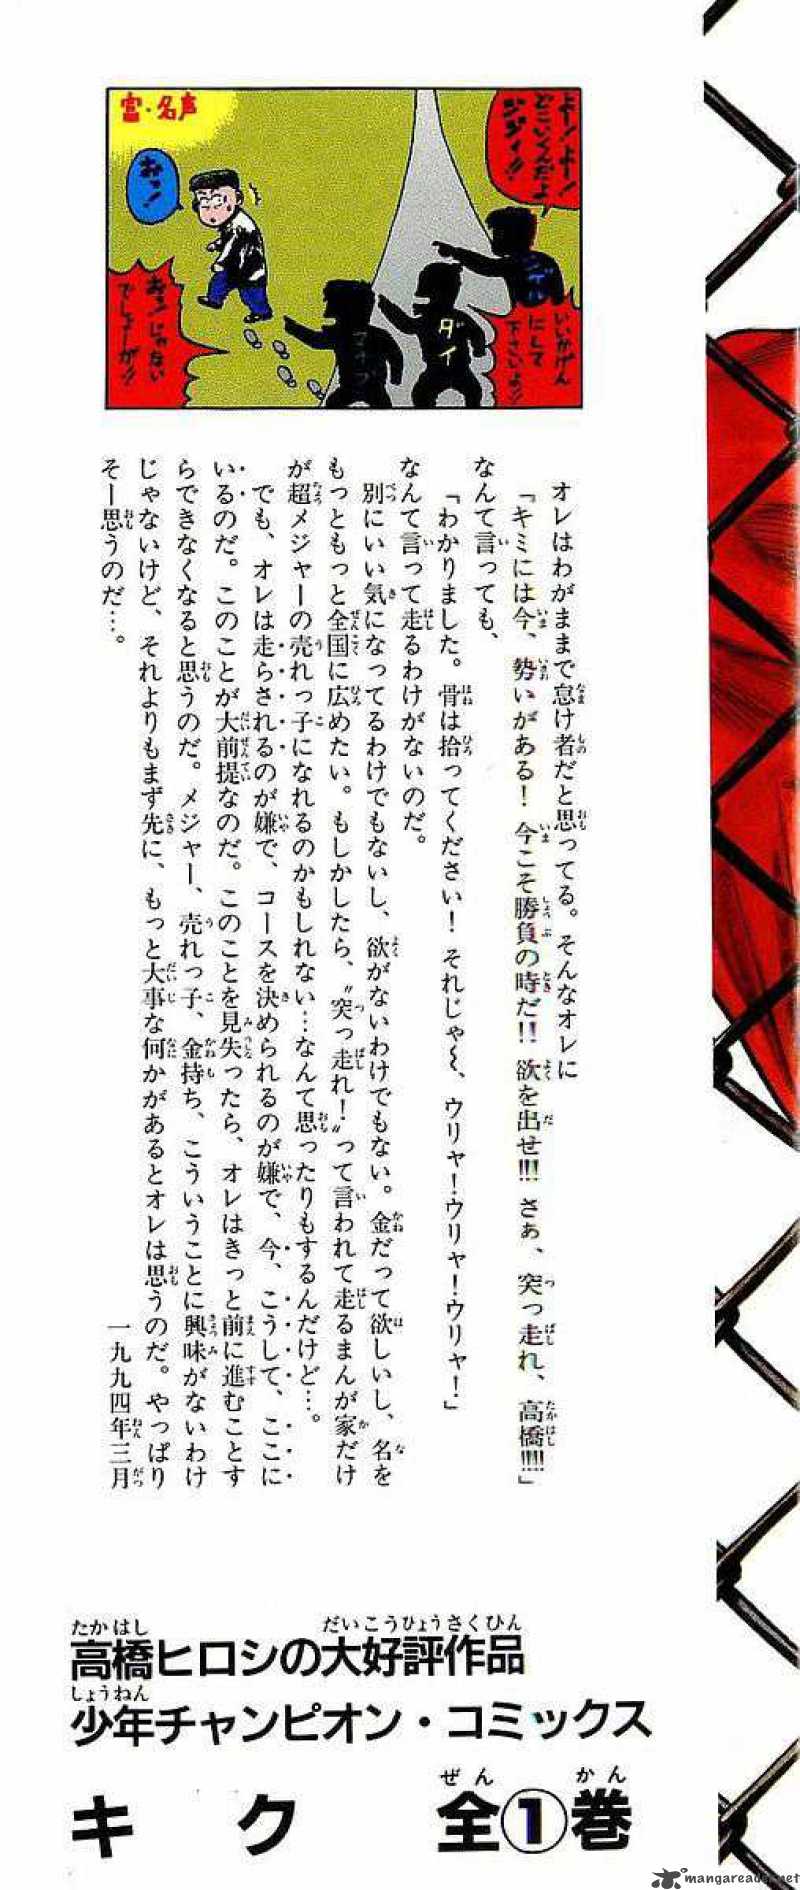 富・名声
よー！よー！
どこいくんだよ
ジジィ!!
おっ！
いいかげん
にして
下さいよ!!
おっじゃない
でしょーが!!
ダイ
オレはわがままで怠け者だと思ってる。そんなオレに
「キミには今、勢いがある！今こそ勝負の時だ!!欲を出せ!!!さぁ、突っ走れ、高橋!!!!」
なんて言っても、
「わかりました。骨は拾ってください！それじゃ〜、ウリャ！ウリャ！ウリャ！」
なんて言って走るわけがないのだ。
別にいい気になってるわけでもないし、欲がないわけでもない。金だって欲しいし、名を
もっともっと全国に広めたい。もしかしたら、〝突っ走れ！〟って言われて走るまんが家だけ
が超メジャーの売れっ子になれるのかもしれない…なんて思ったりもするんだけど…。
でも、オレは走らされるのが嫌で、コースを決められるのが嫌で、今、こうして、ここに
いるのだ。このことが大前提なのだ。このことを見失ったら、オレはきっと前に進むことす
らできなくなると思うのだ。メジャー、売れっ子、金持ち、こういうことに興味がないわけ
じゃないけど、それよりもまず先に、もっと大事な何かがあるとオレは思うのだ。やっぱり
そー思うのだ…。
一九九四年三月
高橋ヒロシの大好評作品
少年チャンピオン・コミックス
キク 全①巻
mangareader.net